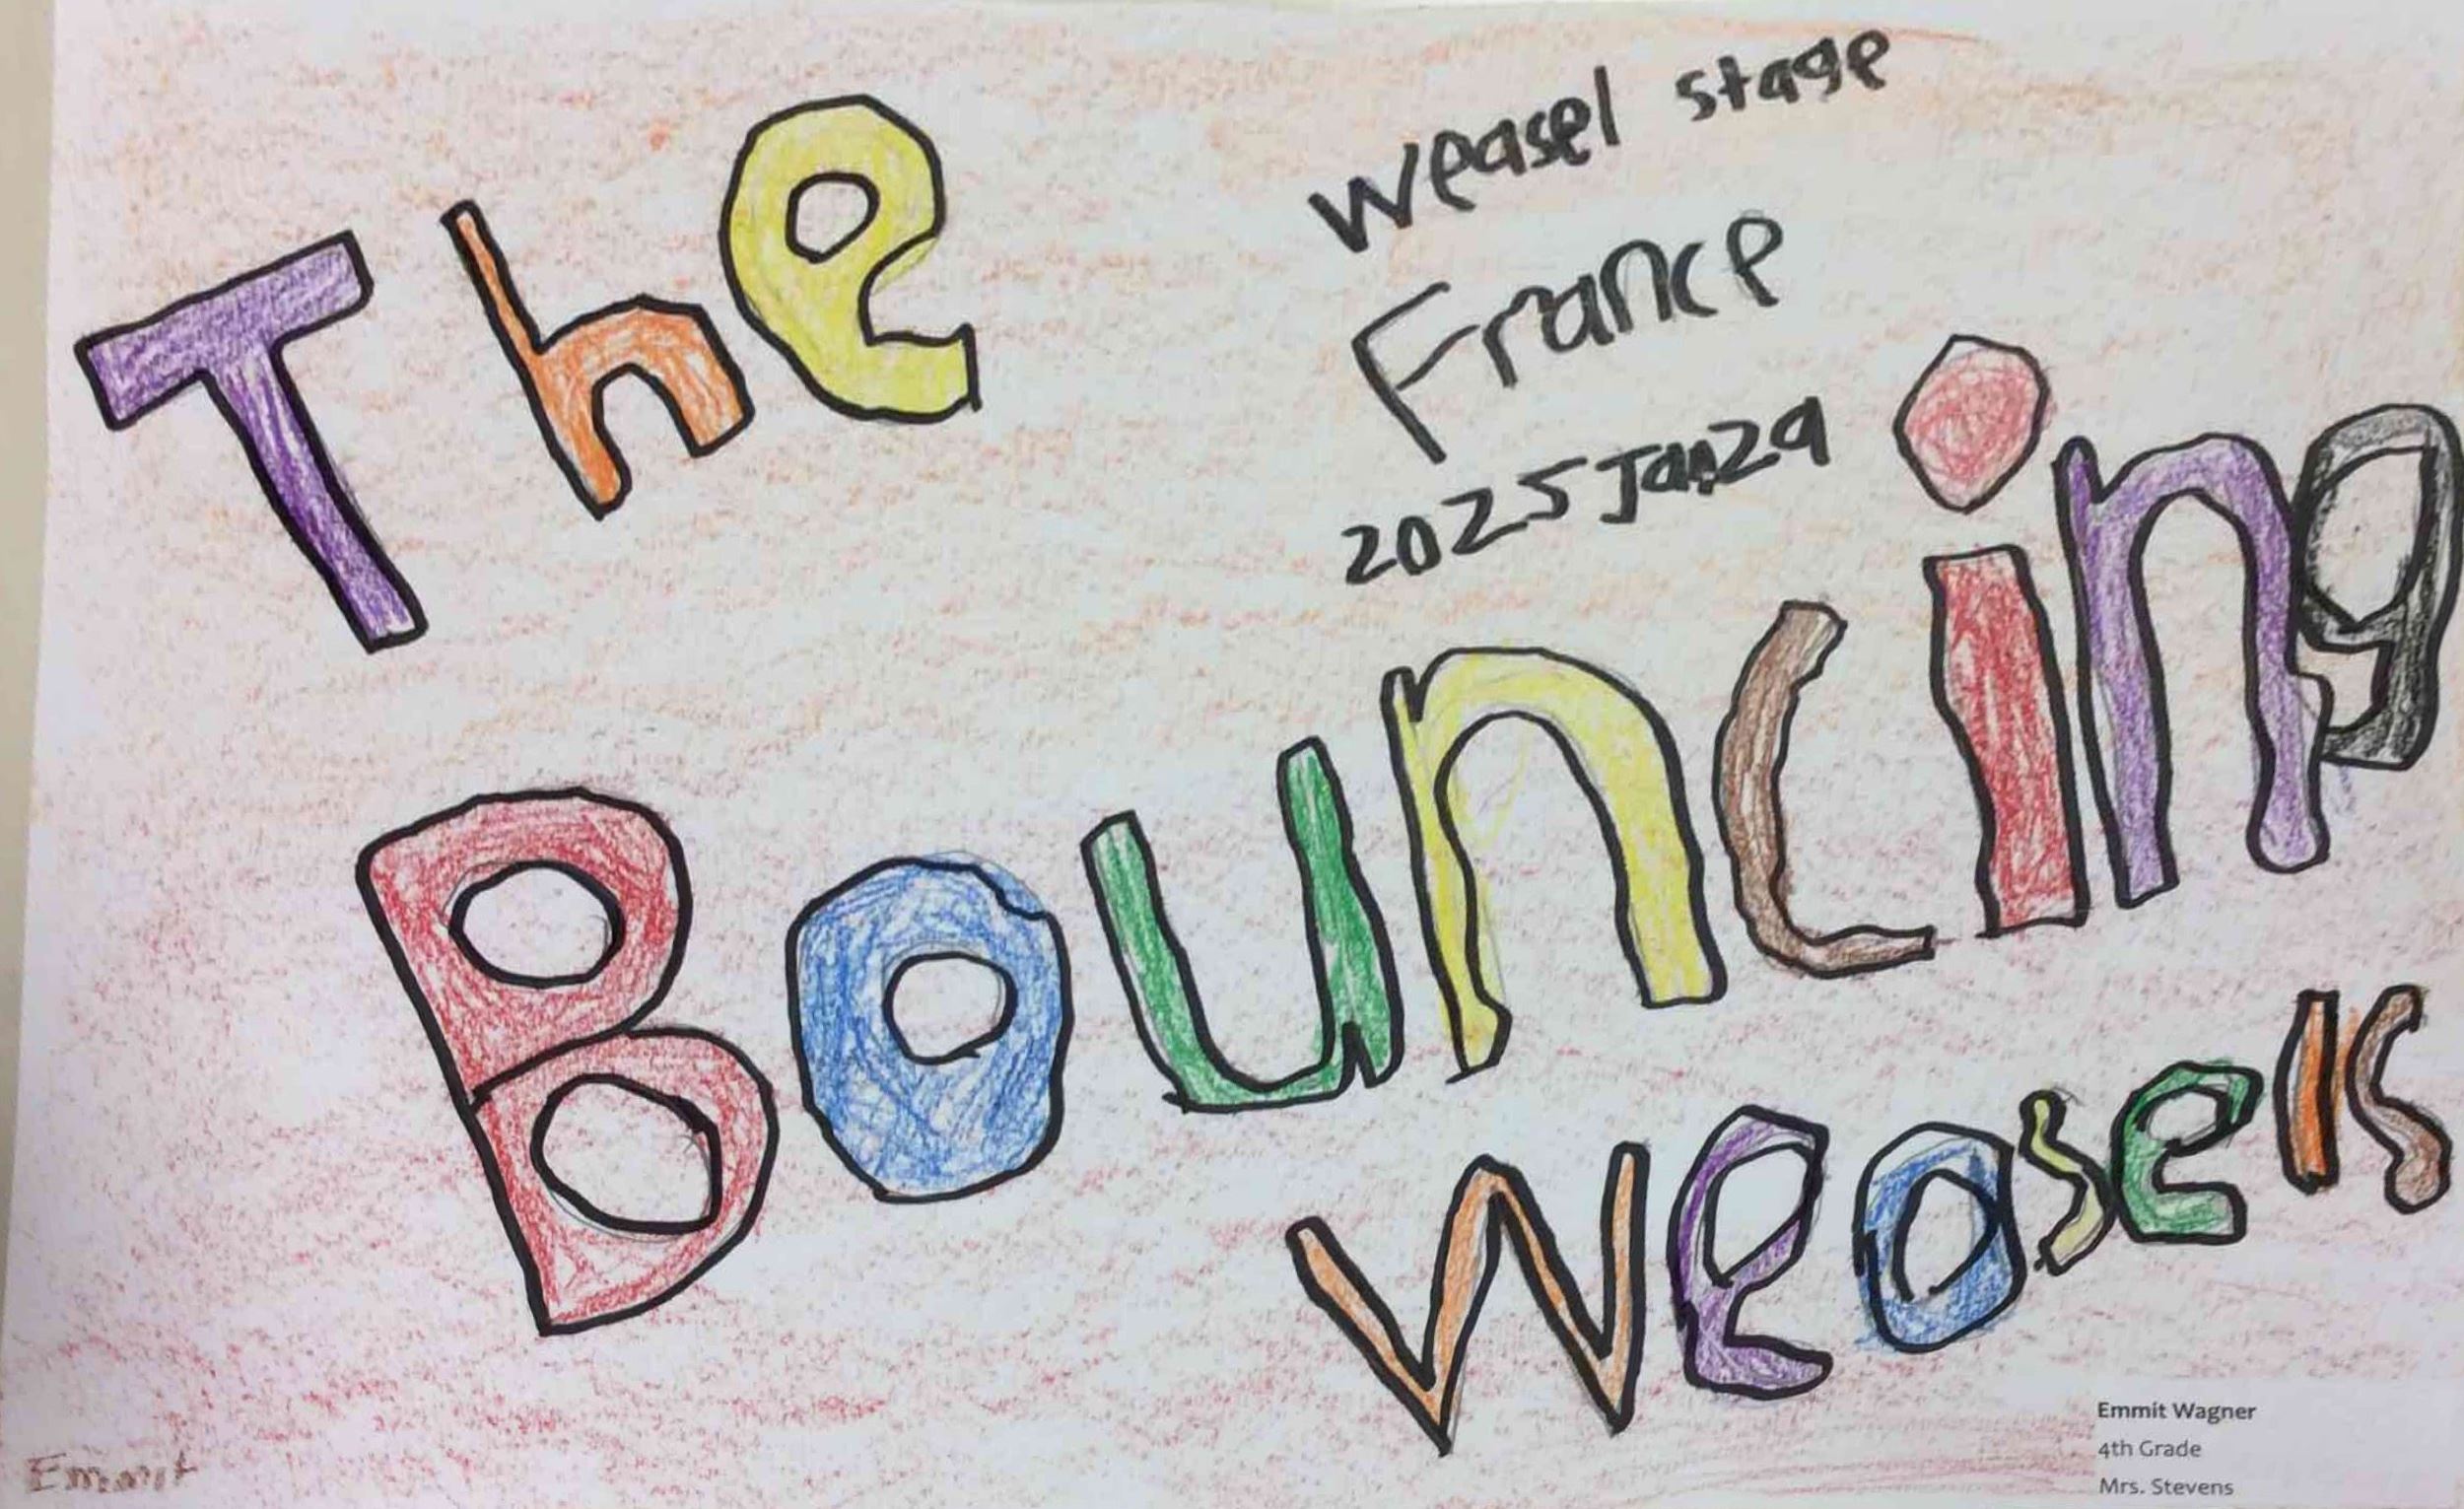 The
weasel stage
France
2025 Jan 29
Bouncing
Weasels
Emmit
Emmit Wagner
4th Grade
Mrs. Stevens